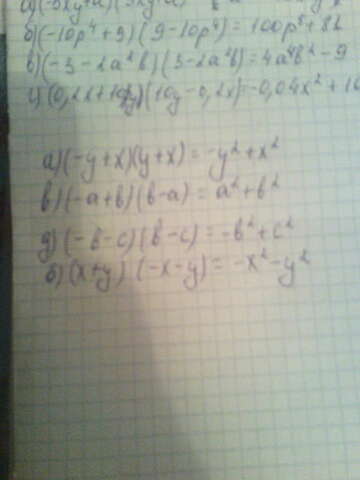 б)(-10p⁴+9)(9-10p⁴)=100p⁸+81
в)(-3-2a²b)(3-2a²b)=4a⁴b²-9
г)(0,2x+10y)(10y-0,2x)=-0,04x²+10
а)(-y+x)(y+x)=-y²+x²
в)(-a+b)(b-a)=a²+b²
д)(-b-c)(b-c)=-b²+c²
б)(x+y)(-x-y)=-x²-y²